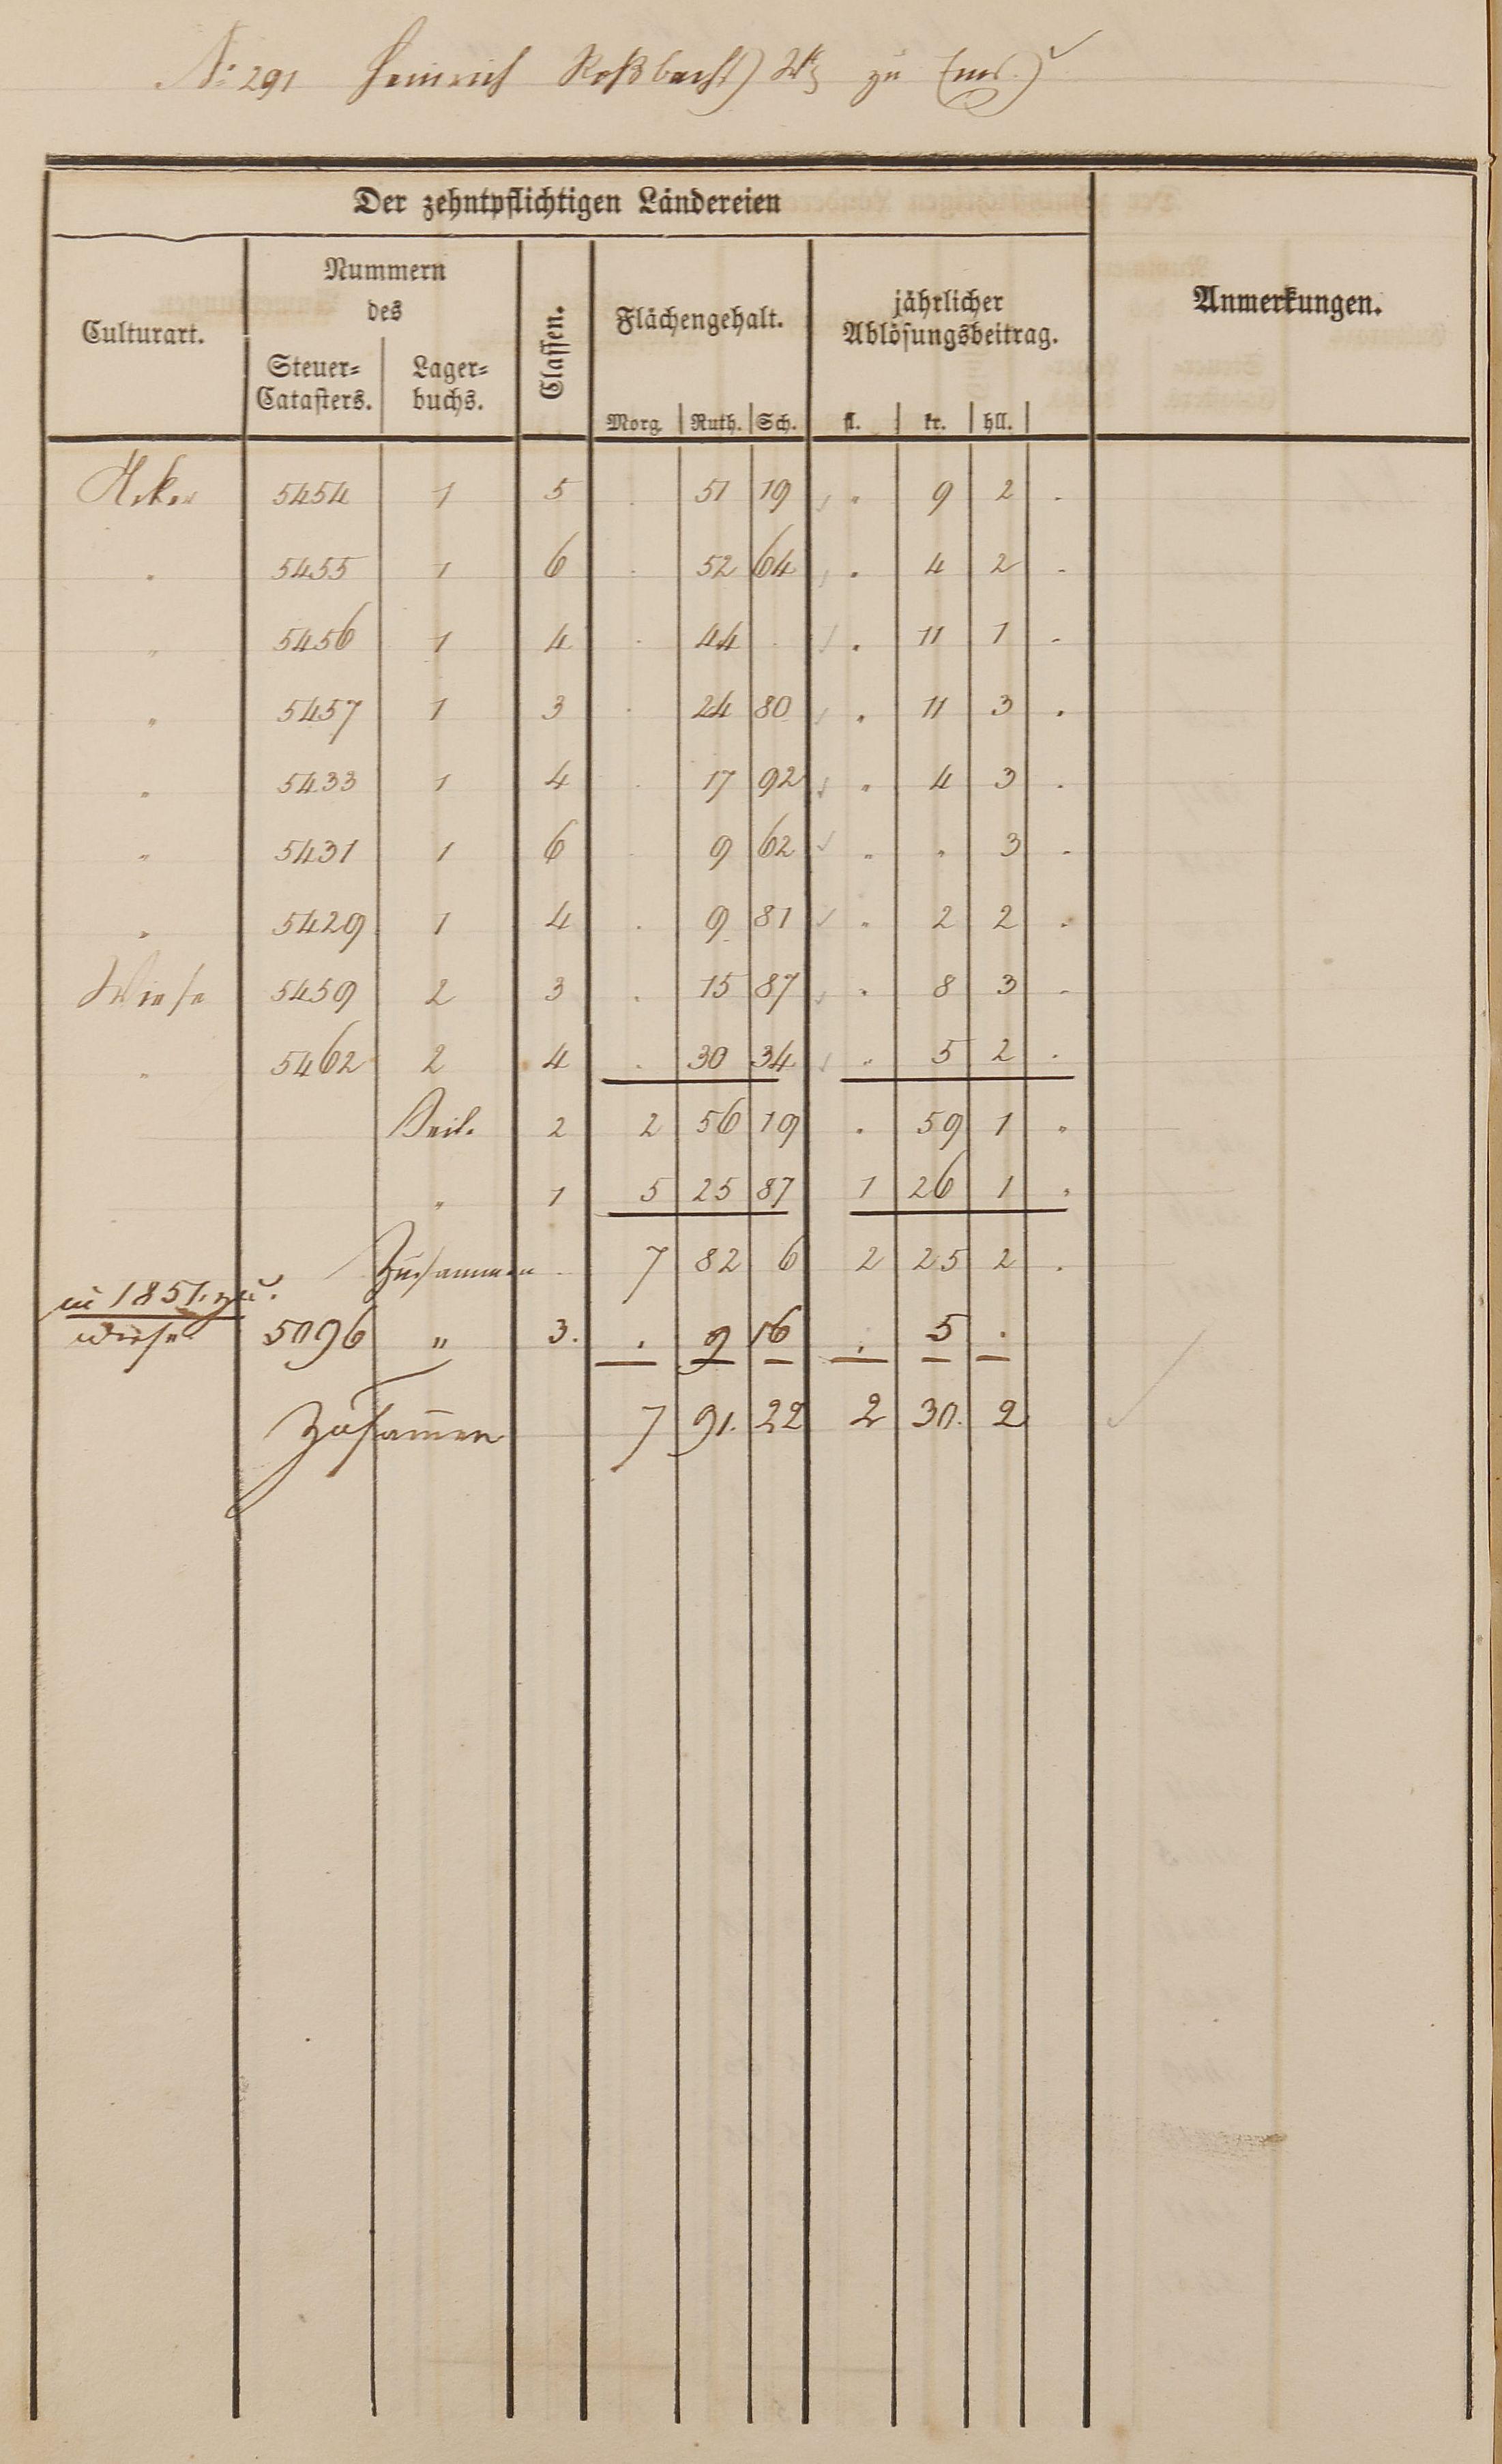 No 291 Heinrich Roßbach) Wb zu Ems.)
Der zehntpflichtigen Ländereien
Culturart.
Nummern
des
Steuer=
Catasters.
Lager=
buchs.
Classen.
Flächengehalt.
Morg. Ruth. Sch.
jährlicher
Ablösungsbeitrag.
fl. kr. hll.
Anmerkungen.
Acker 5454 1 5 . 51 19 " 9 2 .
" 5455 1 6 . 52 64 " 4 2 .
" 5456 1 4 . 44 . " 11 1 .
" 5457 1 3 . 24 80 " 11 3 .
" 5433 1 4 . 17 92 " 4 3 .
" 5431 1 6 . 9 62 " " 3 .
" 5429 1 4 . 9 81 " 2 2 .
Wiese 5459 2 3 . 15 87 " 8 3 .
" 5462 2 4 . 30 34 " 5 2 .
Seil. 2 2 56 19 . 59 1 "
" 1 5 25 87 1 26 1 "
Zusammen 7 82 6 2 25 2 .
in 1851. zu.
Wiese 5096 " 3. . 9 16 . 5 .
Zusammen 7 91. 22 2 30. 2